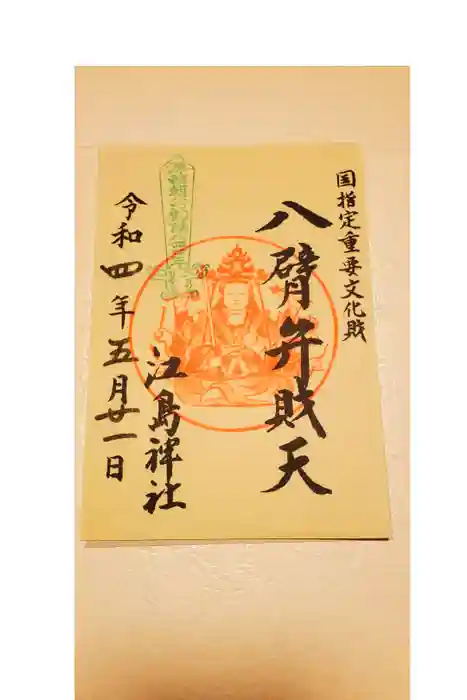 国指定重要文化財
八臂弁財天
江島神社
令和四年五月廿一日